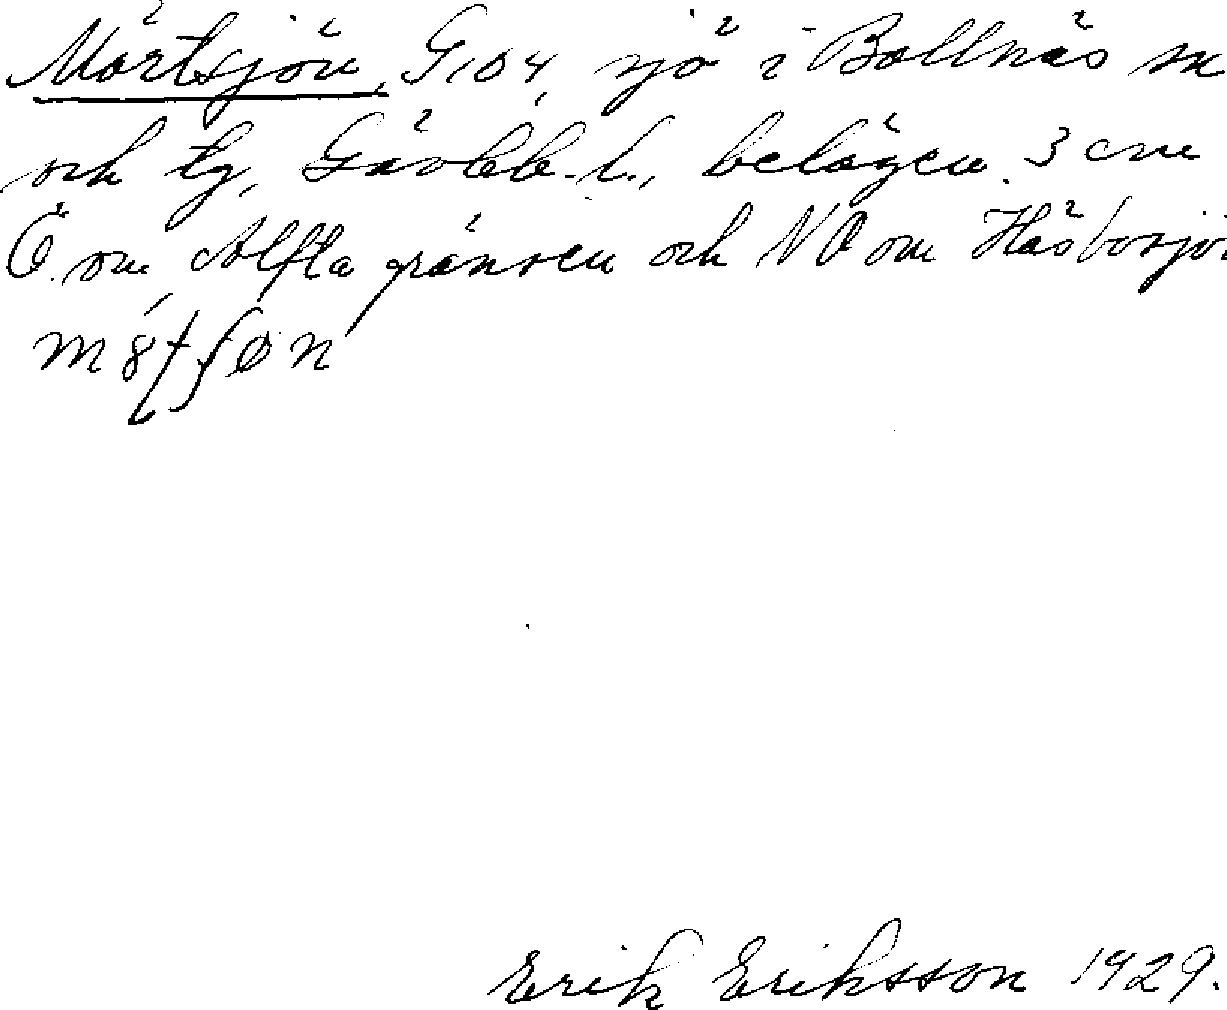 Mörtsjön, G.104, sjö i Bollnäs sn
och tg, Gävleb. l., belägen 3 cm
Ö. om Alfta gränsen och NO om
Erik Eriksson 1929.